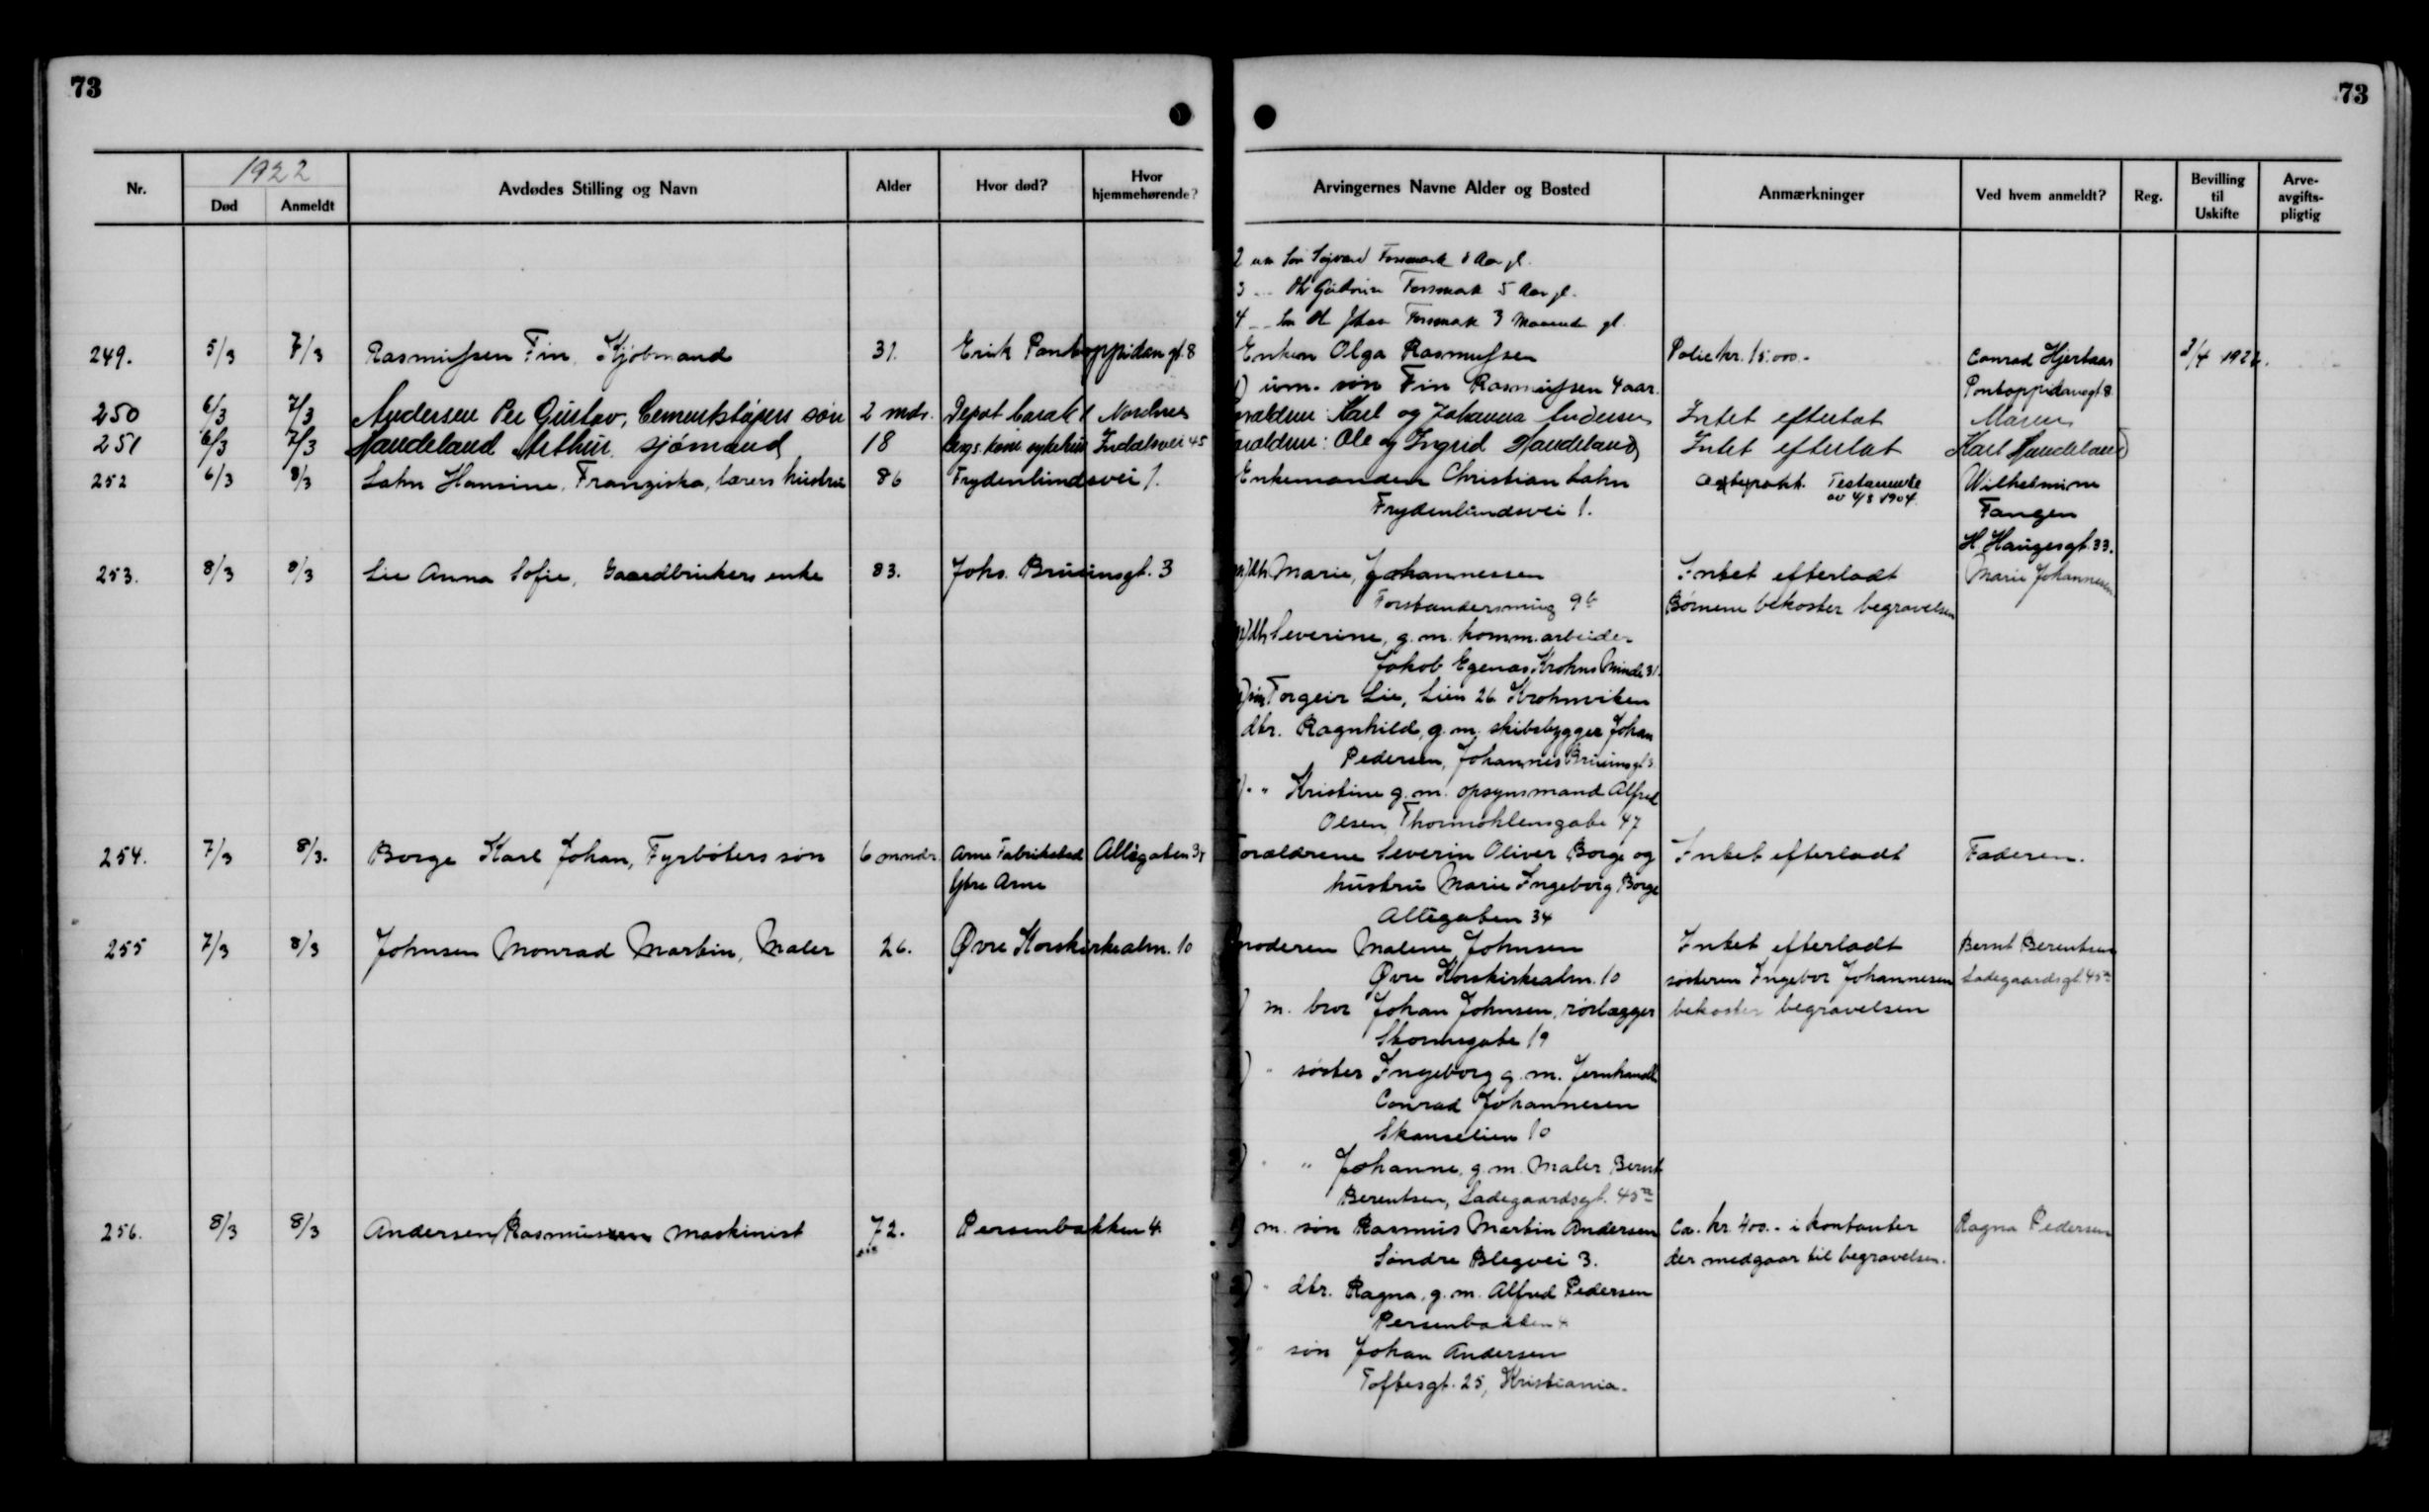 73
73
1922
Nr.
Død
Anmeldt
Avdødes Stilling og Navn
Alder
Hvor død?
Hvor hjemmehørende?
Arvingernes Navne Alder og Bosted
Anmærkninger
Ved hvem anmeldt?
Reg.
Bevilling til Uskifte
Arve-avgifts-pligtig
2 um søn Sigvard Forsmark 8 Aar gl.
3 Forsmark 5 Aar gl.
4 Forsmark 3 Maaneder gl.
249. 5/3 7/3 Rasmussen Fin, Kjøbmand 31. Erik Pontoppidan gt. 8 Enken Olga Rasmussen Polic kr. 15.000.- Conrad Hjertaas 3/4 1922.
1) um. søn Fin Rasmussen 4 aar. Pontoppidansgt. 8
250 6/3 7/3 Andersen Per Gustav, Cementstøpers søn 2 mdr. Depot barak 1 Nordnes Forældrene: Karl og Johanna Andersen Intet efterlat
251 6/3 7/3 Haudeland Arthur, sjømand 18 Bergs. kom. sykehus Indalsvei 45 Forældrene: Ole og Ingrid Haudeland Intet efterlat Karl Haudeland
252 6/3 8/3 Lahn Hansine, Franziska, lærers hustru 86 Frydenlundsvei 1. Enkemanden Christian Lahn Testamente Wilhelmine
Frydenlundsvei 1. av 4/3 1904. Fangen
H. Haugesgt. 33.
253. 8/3 8/3 Lie Anna Sofie, Gaardbrukers enke 83. Johs. Bruunsgt. 3 dtr. Marie, Johannessen Intet efterladt Marie Johannessen
Forstandersmug 9b Børnene bekoster begravelsen
dtr. Severine, g. m. komm. arbeider
Jakob Egenæs Krohns Minde 31.
søn Torgeir Lie, Lien 26 Krohnviken
dtr. Ragnhild, g. m. skibsbygger Johan
Pedersen, Johannes Bruunsgt 3.
" Kristine g. m. opsynsmand Alfred
Olsen, Thormøhlensgate 47
254. 7/3 8/3. Borge Karl Johan, Fyrbøters søn 6 mndr. Arne Fabriksted Allégaten 34 Forældrene Severin Oliver Borge og Intet efterladt Faderen.
Ytre Arne hustru Marie Ingeborg Borge
Allégaten 34
255 7/3 8/3 Johnsen Monrad Martin, Maler 26. Øvre Korskirkealm. 10 Moderen Malene Johnsen Intet efterladt Bernt Berentsen
Øvre Korskirkealm. 10 søsteren Ingebor Johannesen Ladegaardsgt. 45a
m. bror Johan Johnsen, rørlægger bekoster begravelsen
Skottegate 19
" søster Ingeborg g. m. Jernhandler
Conrad Johannesen
Skanselien 10
" " Johanne, g. m. Maler Bernt
Berentsen, Ladegaardsgt. 45a
256. 8/3 8/3 Andersen Rasmus Maskinist 72. Persenbakken 4. 1) m. søn Rasmus Martin Andersen Ca. kr. 400.- i kontanter Ragna Pedersen
Søndre Blegvei 3. der medgaar til begravelsen.
2) " dtr. Ragna, g. m. Alfred Pedersen
Persenbakken 4
3) " søn Johan Andersen
Toftesgt. 25, Kristiania.